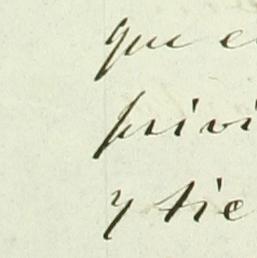 que e
privi
y tie